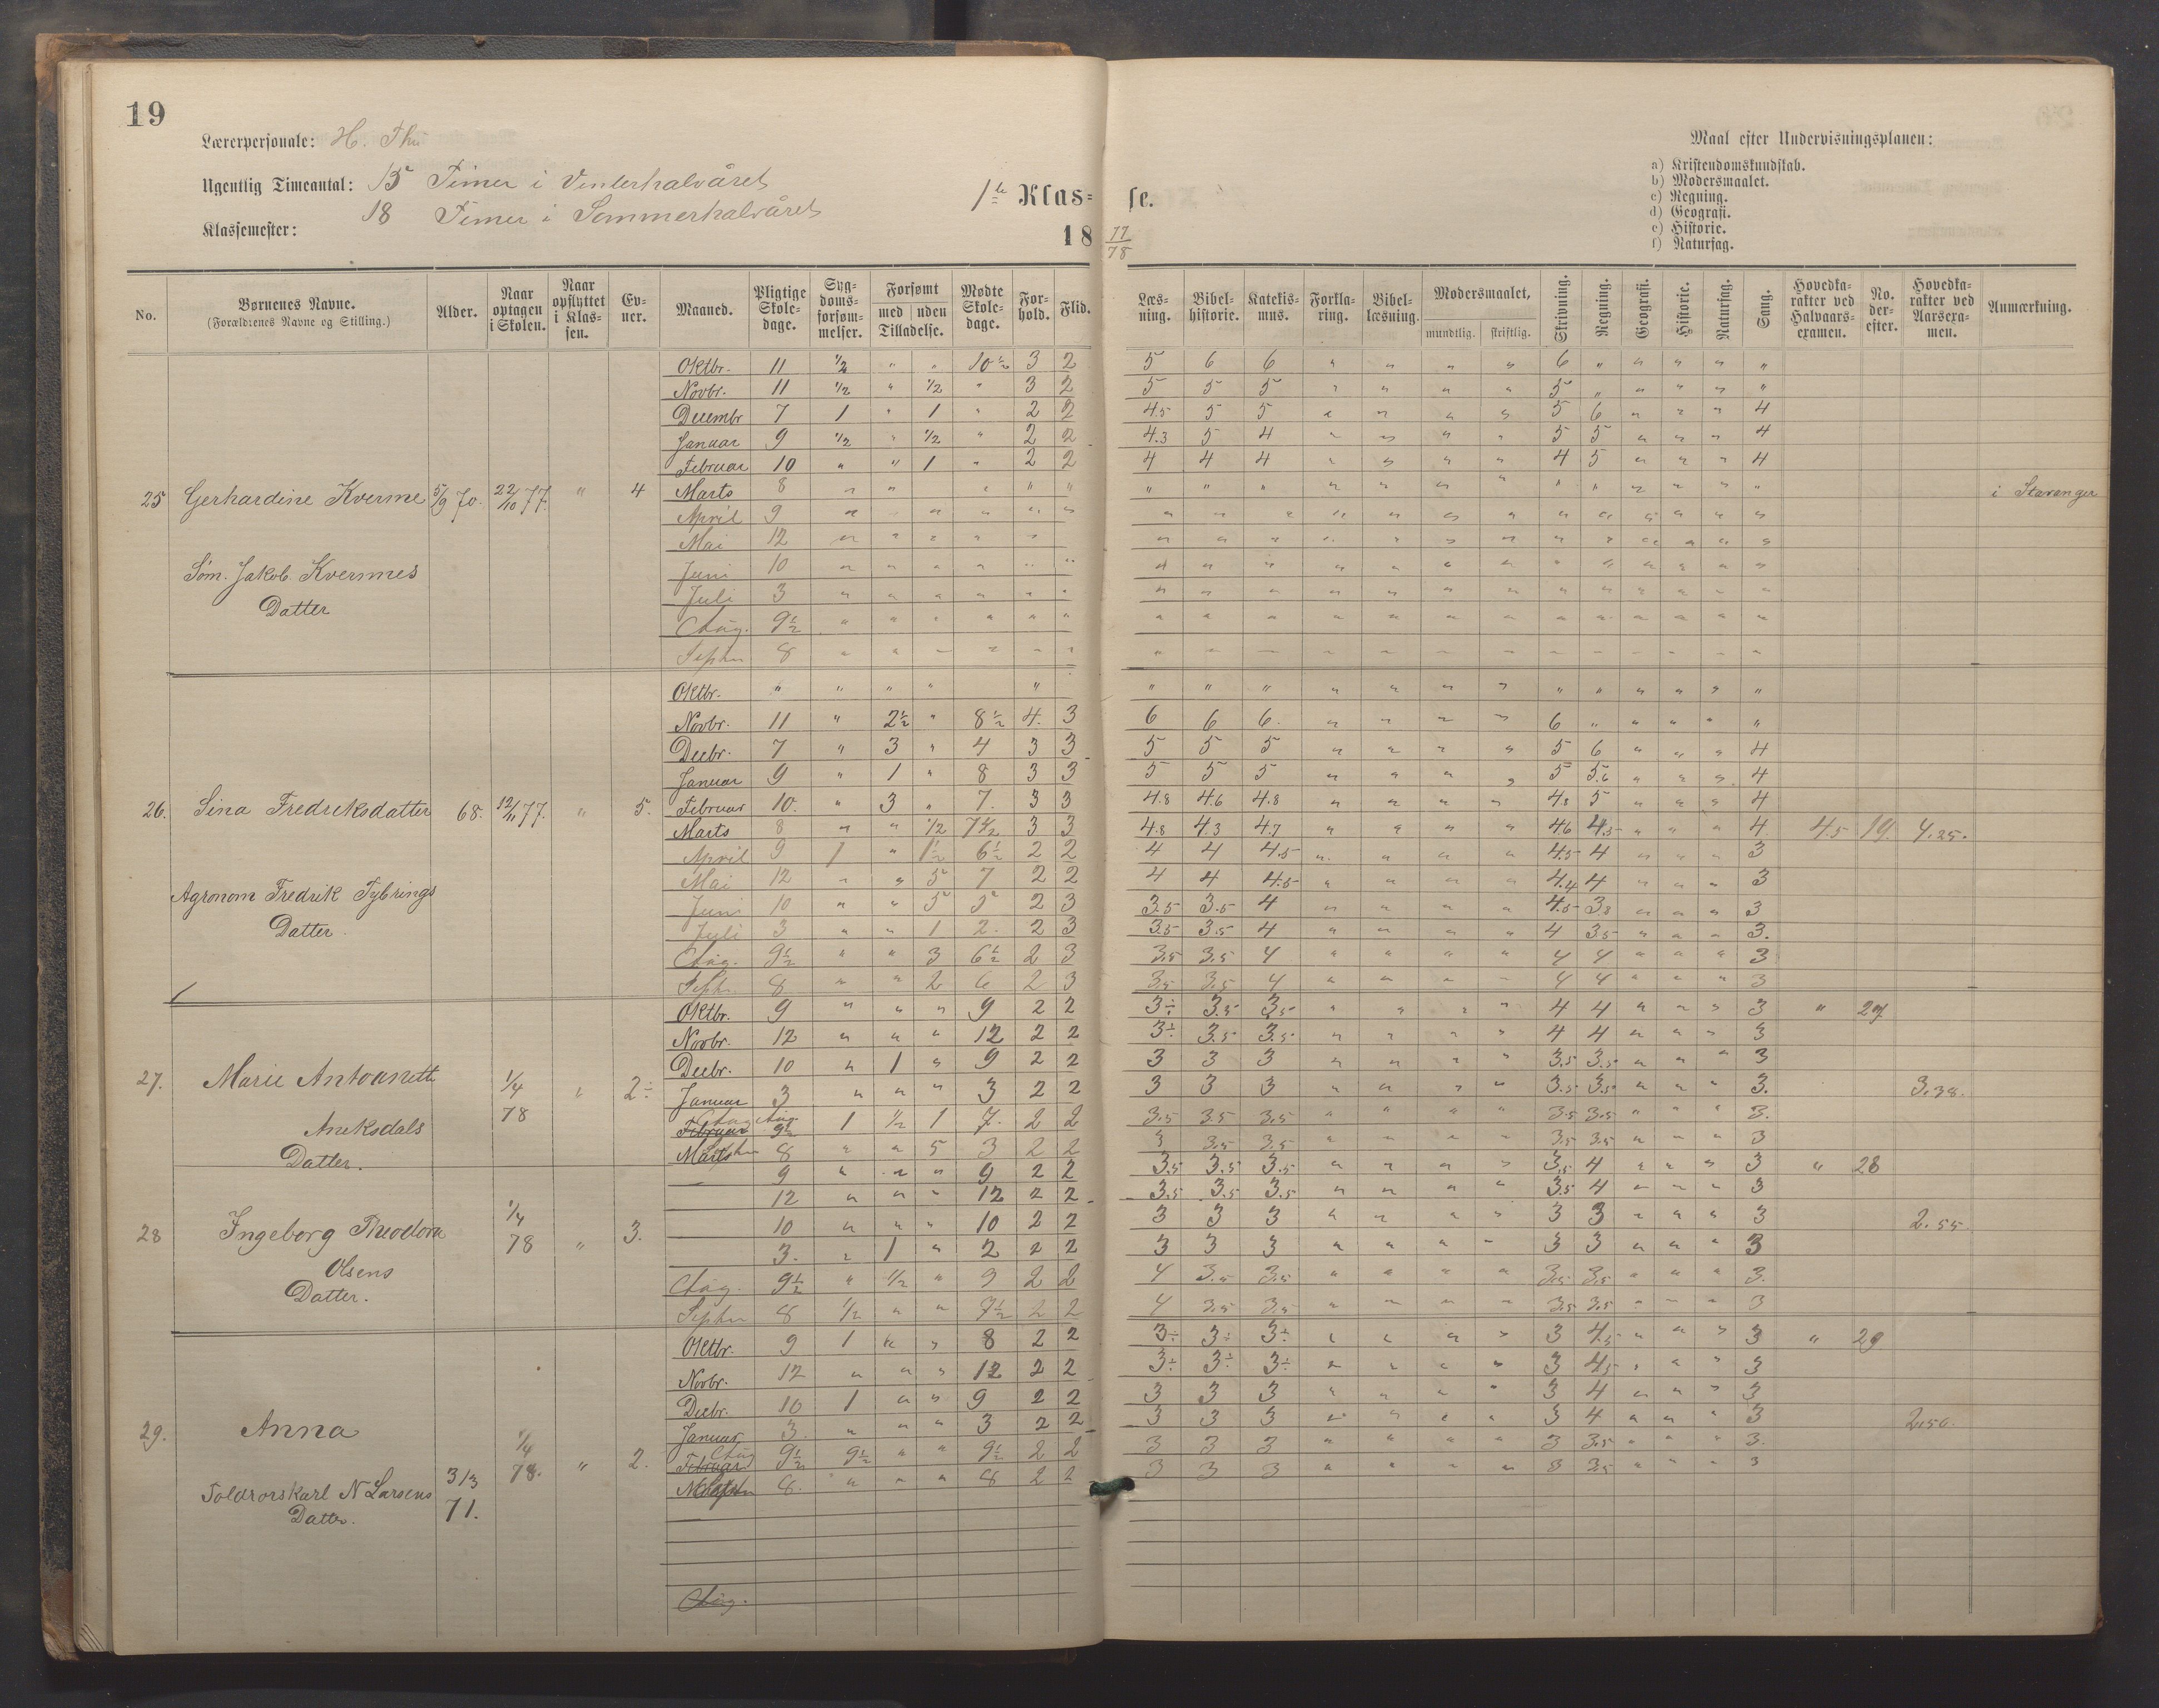 19
Lærerpersonale: H. Thu
Ugentlig Timeantal: 15 Timer i Vinterhalvåret
18 Timer i Sommerhalvåret
Klassemester:
1ste Klasse.
18 77/78
Maal efter Undervisningsplanen:
a) Kristendomskundskab.
b) Modersmaalet.
c) Regning.
d) Geografi.
e) Historie.
f) Naturfag.
No. Børnenes Navne. (Forældrenes Navne og Stilling.) Alder. Naar optagen i Skolen. Naar opflyttet i Klassen. Evner. Maaned. Pligtige Skoledage. Sygdomsforsømmelser. Forsømt med uden Tilladelse. Mødte Skoledage. Forhold. Flid. Læsning. Bibelhistorie. Katekismus. Forklaring. Bibellæsning. Modersmaalet, mundtlig. skriftlig. Skrivning. Regning. Geografi. Historie. Naturfag. Sang. Hovedkarakter ved Halvaarsexamen. No. derefter. Hovedkarakter ved Aarsexamen. Anmærkning.
Oktbr. 11 1/2 " " 10 1/2 3 2 5 6 6 " " " " 6 " " " " "
Novbr. 11 1/2 " 1/2 " 3 2 5 5 5 " " " " 5 " " " " "
Decembr 7 1 " 1 " 2 2 4.5 5 5 " " " " 5 6 " " " 4
Januar 9 1/2 " 1/2 " 2 2 4.3 5 4 " " " " 5 5 " " " 4
Februar 10 " " 1 " 2 2 4 4 4 " " " " 4 5 " " " 4
25 Gerhardine Kverme 5/9 70. 22/10 77. " 4 Marts 8 i Stavanger
April 9
Mai 12
Søm. Jakob Kvermes Juni 10
Datter Juli 3
Aug. 9 1/2
Septr 8
Oktbr.
Novbr. 11 " 2 1/2 " 8 1/2 4. 3 6 6 6. " " " " 6 " " " " "
Decbr. 7 " 3 " 4 3 3 5 5 5 " " " " 5 6 " " " 4
Januar 9 " 1 " 8 3 3 5 5 5 " " " " 5 5.6 " " " 4
26. Sina Fredriksdatter 68. 12/11 77. " 5. Februar 10. " 3 " 7. 3 3 4.8 4.6 4.8 " " " " 4.8 5 " " " 4
Marts 8 " " 1/2 7 1/2 3 3 4.8 4.3 4.7 " " " " 4.6 4.5 " " " 4 4.5 19. 4.25.
April 9 1 " 1 1/2 6 1/2 2 2 4 4 4.5 " " " " 4.5 4 " " " 3
Mai 12 " " 5 7 2 2 4 4 4.5 " " " " 4.4 4 " " " 3
Agronom Fredrik Tybrings Juni 10 " " 5 5 2 3 3.5 3.5 4 " " " " 4.5 3.8 " " " 3
Datter. Juli 3 " " 1 2. 2 3 3.5 3.5 4 " " " " 4 3.5 " " " 3.
Aug. 9 1/2 " " 3 6 1/2 2 3 3.5 3.5 4 " " " " 4 4 " " " 3
Septr. 8 " " 2 6 2 3 3.5 3.5 4 " " " " 4 4 " " " 3
Oktbr. 9 " " " 9 2 2 3÷ 3.5 3.5 " " " " 4 4 " " " 3 " 27
Novbr. 12 " " " 12 2 2 3÷ 3.5 3.5 " " " " 4 4 " " " 3
Decbr. 10 " 1 " 9 2 2 3 3 3 " " " " 3.5 3.5 " " " 3
27. Marie Antoanette 1/4 78 " 2÷ Januar 3 " " " 3 2 2 3 3 3 " " " " 3.5 3.5 " " " 3. 3.38.
Aneksdals Februar Aug 9 1/2 1 1/2 1 7. 2 2 3.5 3.5 3.5 " " " " 3.5 3.5 " " " 3.
Datter. Marts 8 " " 5 3 2 2 3 3.5 3.5 " " " " 3.5 3.5 " " " 3
9 " " " 9 2 2 3.5 3.5 3.5 " " " " 3.5 4 " " " 3 " 28
12 " " " 12 2 2 3.5 3.5 3.5 " " " " 3.5 4 " " " 3
28 Ingeborg Theodora 1/4 78 " 3. 10 " " " 10 2 2 3 3 3 " " " " 3 3 " " " 3 2.55.
3. " 1 " 2 2 2 3 3 3 " " " " 3 3 " " " 3
Olsens Aug. 9 1/2 " 1/2 " 9 2 2 4 3.5 3.5 " " " " 3.5 3.5 " " " 3.
Datter. Septr 8 1/2 " " 7 1/2 2 2 4 3.5 3.5 " " " " 3.5 3.5 " " " 3
Oktbr. 9 1 " " 8 2 2 3÷ 3÷ 3÷ " " " " 3 4.5 " " " 3 " 29
Novbr. 12 " " " 12 2 2 3÷ 3÷ 3÷ " " " " 3 4.5 " " " 3
Decbr. 10 1 " " 9 2 2 3 3 3 " " " " 3 4 " " " 3
29. Anna 1/4 78. " 2. Januar 3. " " " 3 2 2 3 3 3 " " " " 3 4 " " " 3 2.50.
Februar Aug 9 1/2 9 1/2 " " 9 1/2 2 2 3 3 3 " " " " 3 3.5 " " " 3.
Toldrorskarl N Larsens 31/3 71. 8. " " " 8 2 2 3 3 3 " " " " 3 3.5 " " " 3
Datter.
Aug.